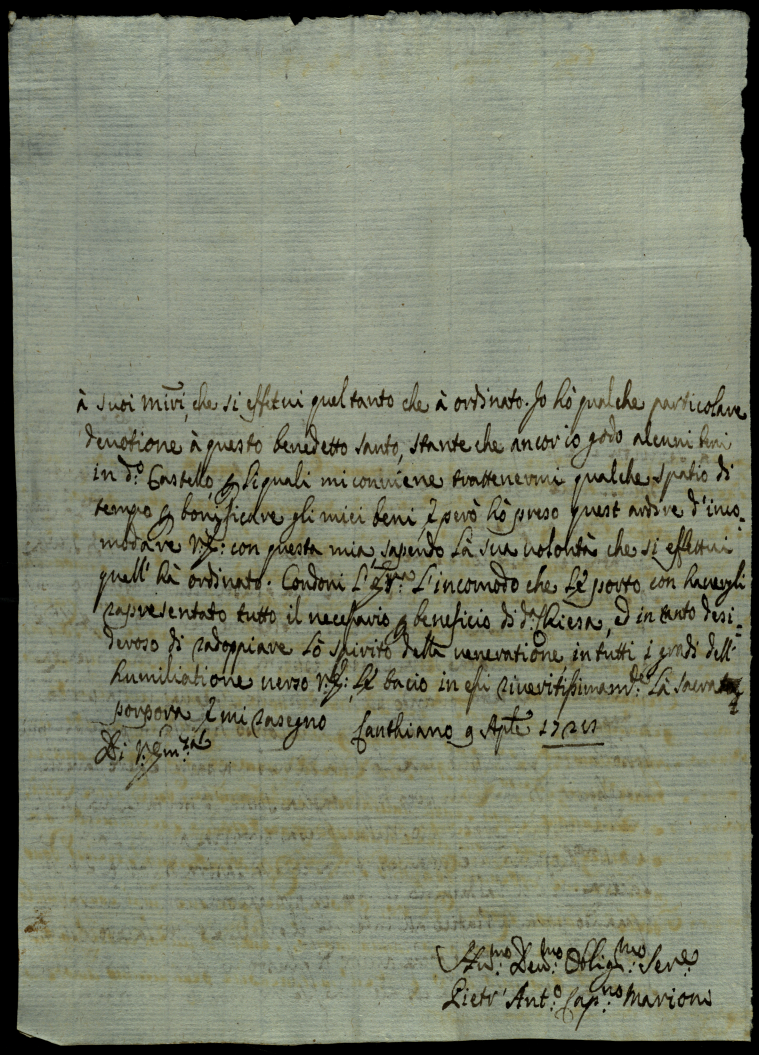 à suoi mīri, che si effetui quel tanto che à ordinato. Jo hò qualche particolare
deuotione à questo benedetto santo, stante che ancor io godo alcuni beni
in d.º Castello, p li quali mi conuiene trattenermi qualche spatio di
tempo p bonificare gli miei beni, e però hò preso quest ardire d'inco-
modare V.E: con questa mia, sapendo la sua uolontà che si effettui
quell' hà ordinato. Condoni l' l'incomodo che Le porto con hauergli
rapresentato tutto il necessario p beneficio di d.ª Chiesa, ed in tanto desi-
deroso di radoppiare lo spirito della ueneratione in tutti i gradi dell'
humiliatione uerso V.E: Le bacio in essi riueritissimam.te la sacrata
porpora e mi rasegno Canthiano 9 Aple
Di V. Em.za
Hu.mo Deu.mo Oblig.mo Ser.e
Pietr' Ant.º Cap.no Marioni